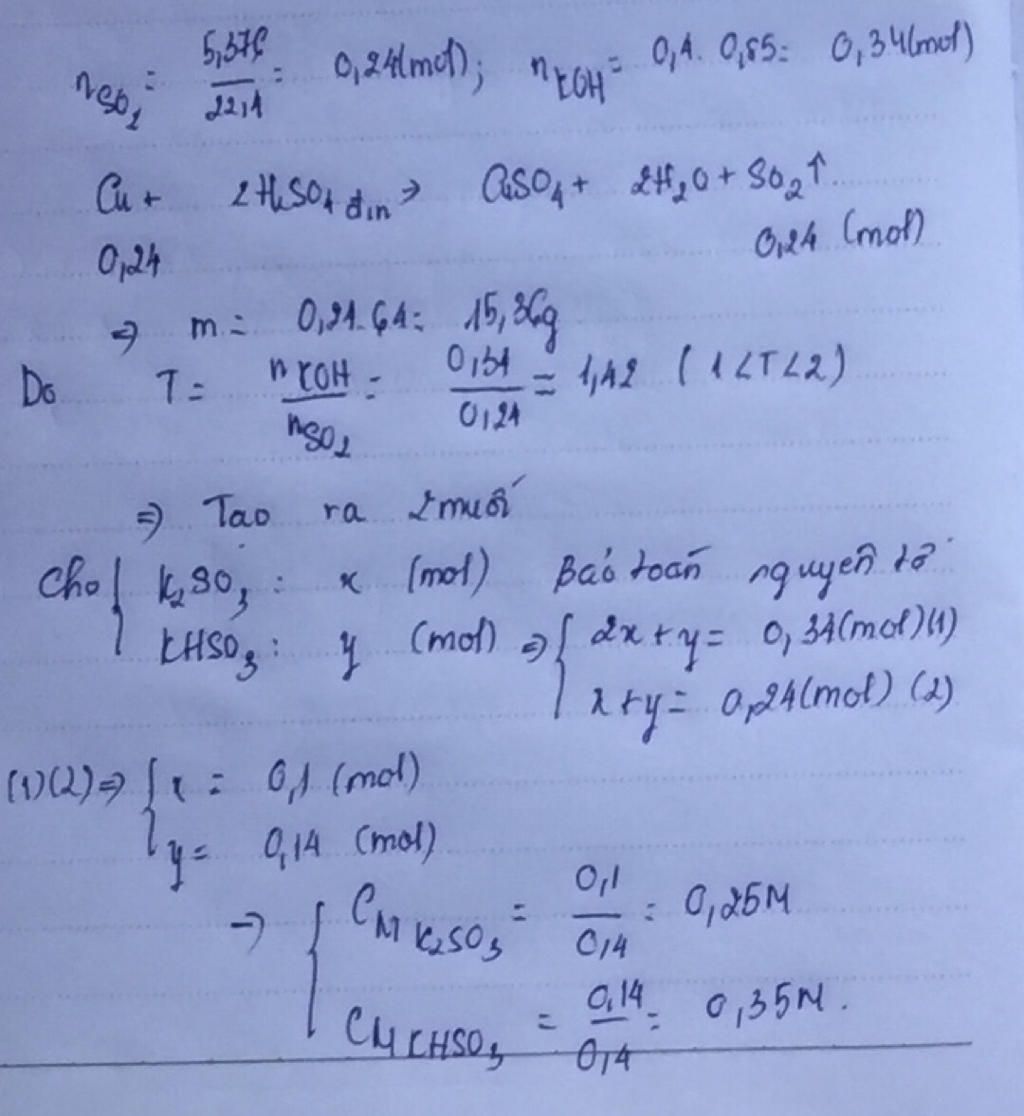 nSO2 = 5,376/22,4 = 0,24(mol); nKOH = 0,4. 0,85 = 0,34(mol)
Cu + 2H2SO4 đ,n → CuSO4 + 2H2O + SO2↑
0,24 0,24 (mol)
⇒ m = 0,24.64 = 15,36g
Do T = nKOH/nSO2 = 0,34/0,24 = 1,42 (1<T<2)
⇒ Tạo ra 2 muối
Cho { K2SO3 : x (mol) Bảo toàn nguyên tố
KHSO3 : y (mol) ⇒ { 2x + y = 0,34(mol)(1)
x + y = 0,24(mol) (2)
(1)(2) ⇒ { x = 0,1 (mol)
y = 0,14 (mol)
→ { CM K2SO3 = 0,1/0,4 = 0,25M
CM KHSO3 = 0,14/0,4 = 0,35M.